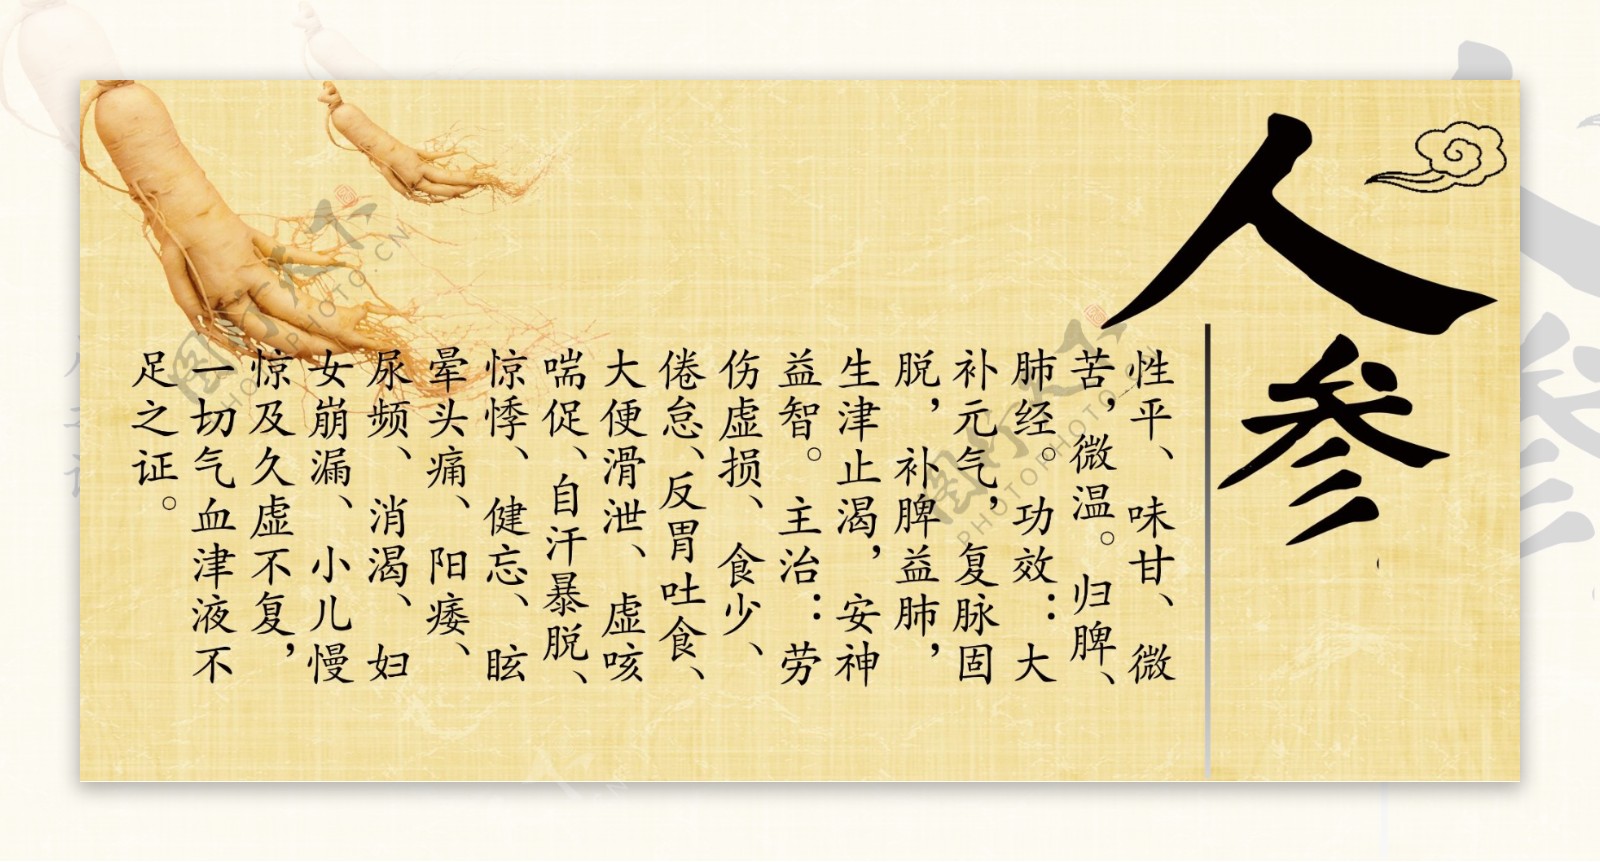 人参
性平、味甘、微
苦，微温。归脾、
肺经。功效：大
补元气，复脉固
脱，补脾益肺，
生津止渴，安神
益智。主治：劳
伤虚损、食少、
倦怠、反胃吐食、
大便滑泄、虚咳
喘促、自汗暴脱、
惊悸、健忘、眩
晕头痛、阳痿、
尿频、消渴、妇
女崩漏、小儿慢
惊及久虚不复，
一切气血津液不
足之证。
图行天下
PHOTOPHOTO.CN
图行天下
PHOTOPHOTO.CN